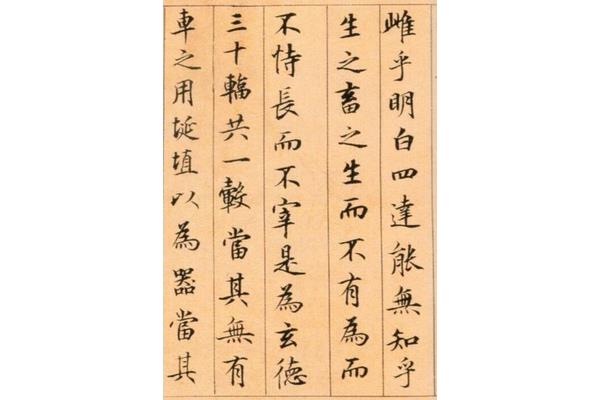 雌乎明白四達能無知乎
生之畜之生而不有為而
不恃長而不宰是為玄德
三十輻共一轂當其無有
車之用埏埴以為器當其